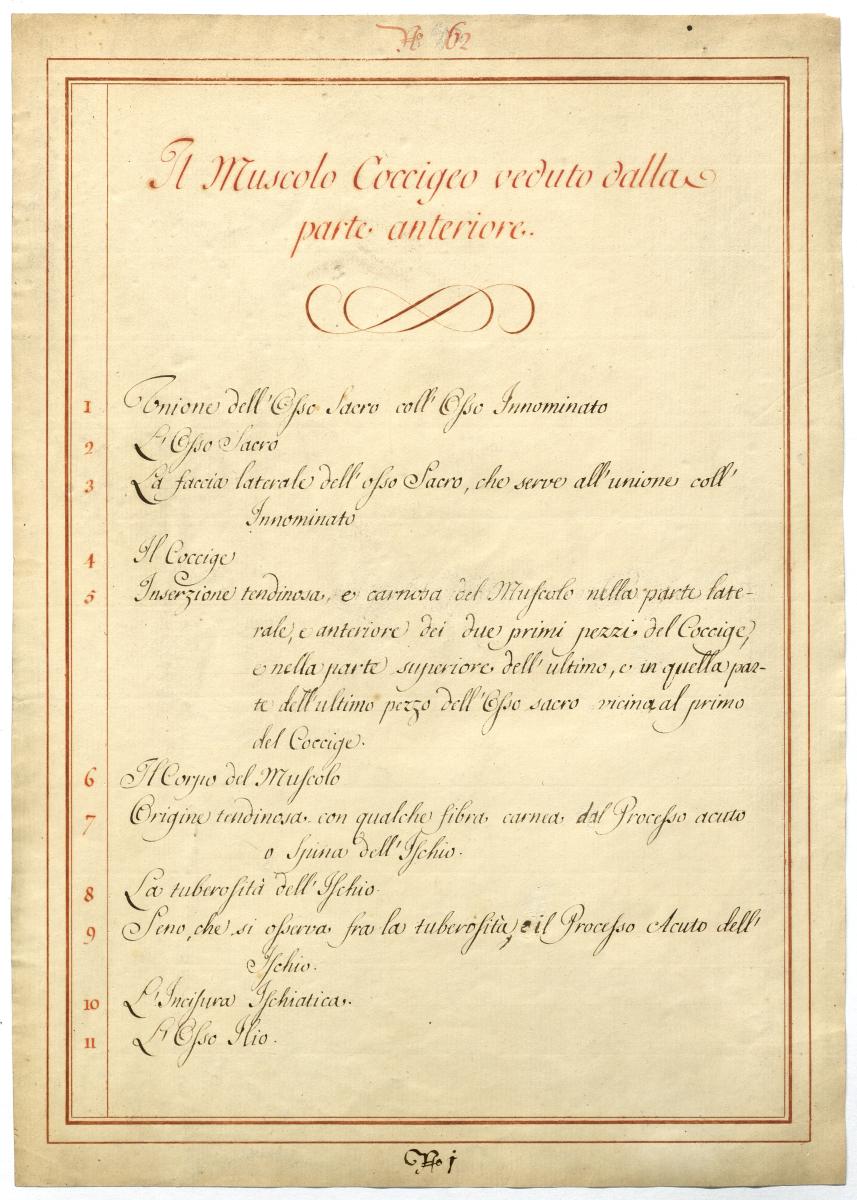 No 62
Il Muscolo Coccigeo veduto dalla
parte anteriore.
1 Unione dell'Osso Sacro coll'Osso Innominato
2 L'Osso Sacro
3 La faccia laterale dell'osso Sacro, che serve all'unione coll'
Innominato
4 Il Coccige
5 Inserzione tendinosa, e carnosa del Muscolo nella parte late-
rale, e anteriore dei due primi pezzi del Coccige,
e nella parte superiore dell'ultimo, e in quella par-
te dell'ultimo pezzo dell'Osso sacro vicina al primo
del Coccige.
6 Il Corpo del Muscolo
7 Origine tendinosa con qualche fibra carnea dal Processo acuto
o Spina dell'Ischio.
8 La tuberosità dell'Ischio.
9 Seno, che si osserva fra la tuberosità, e il Processo Acuto dell'
Ischio.
10 L'Incisura Ischiatica.
11 L'Osso Ilio.
No 1